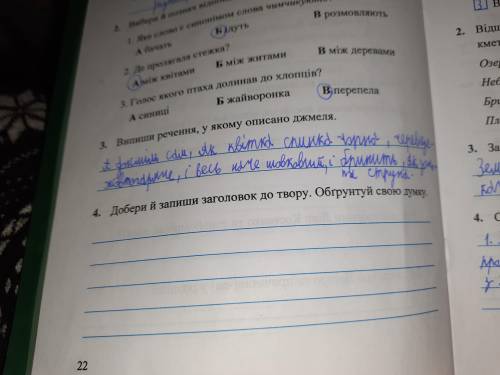 2. Вибери й познач відпов
1. Яке слово є синонімом слова чимчикують?
А бачать Б ідуть В розмовляють
2. Де пролягала стежка?
А між квітами Б між житами В між деревами
3. Голос якого птаха долинав до хлопців?
А синиці Б жайворонка В перепела
3. Випиши речення, у якому описано джмеля.
сам, як квітка спинка чорна, черевце
жовтогаряче, і весь наче шовковий, і бринить, як
та струна.
4. Добери й запиши заголовок до твору. Обґрунтуй свою думку.
22
3. В
2. Відш
кмет
Озер
Неб
Бри
Пл
3. За
Зем
кал
4. С
1.
пра
у